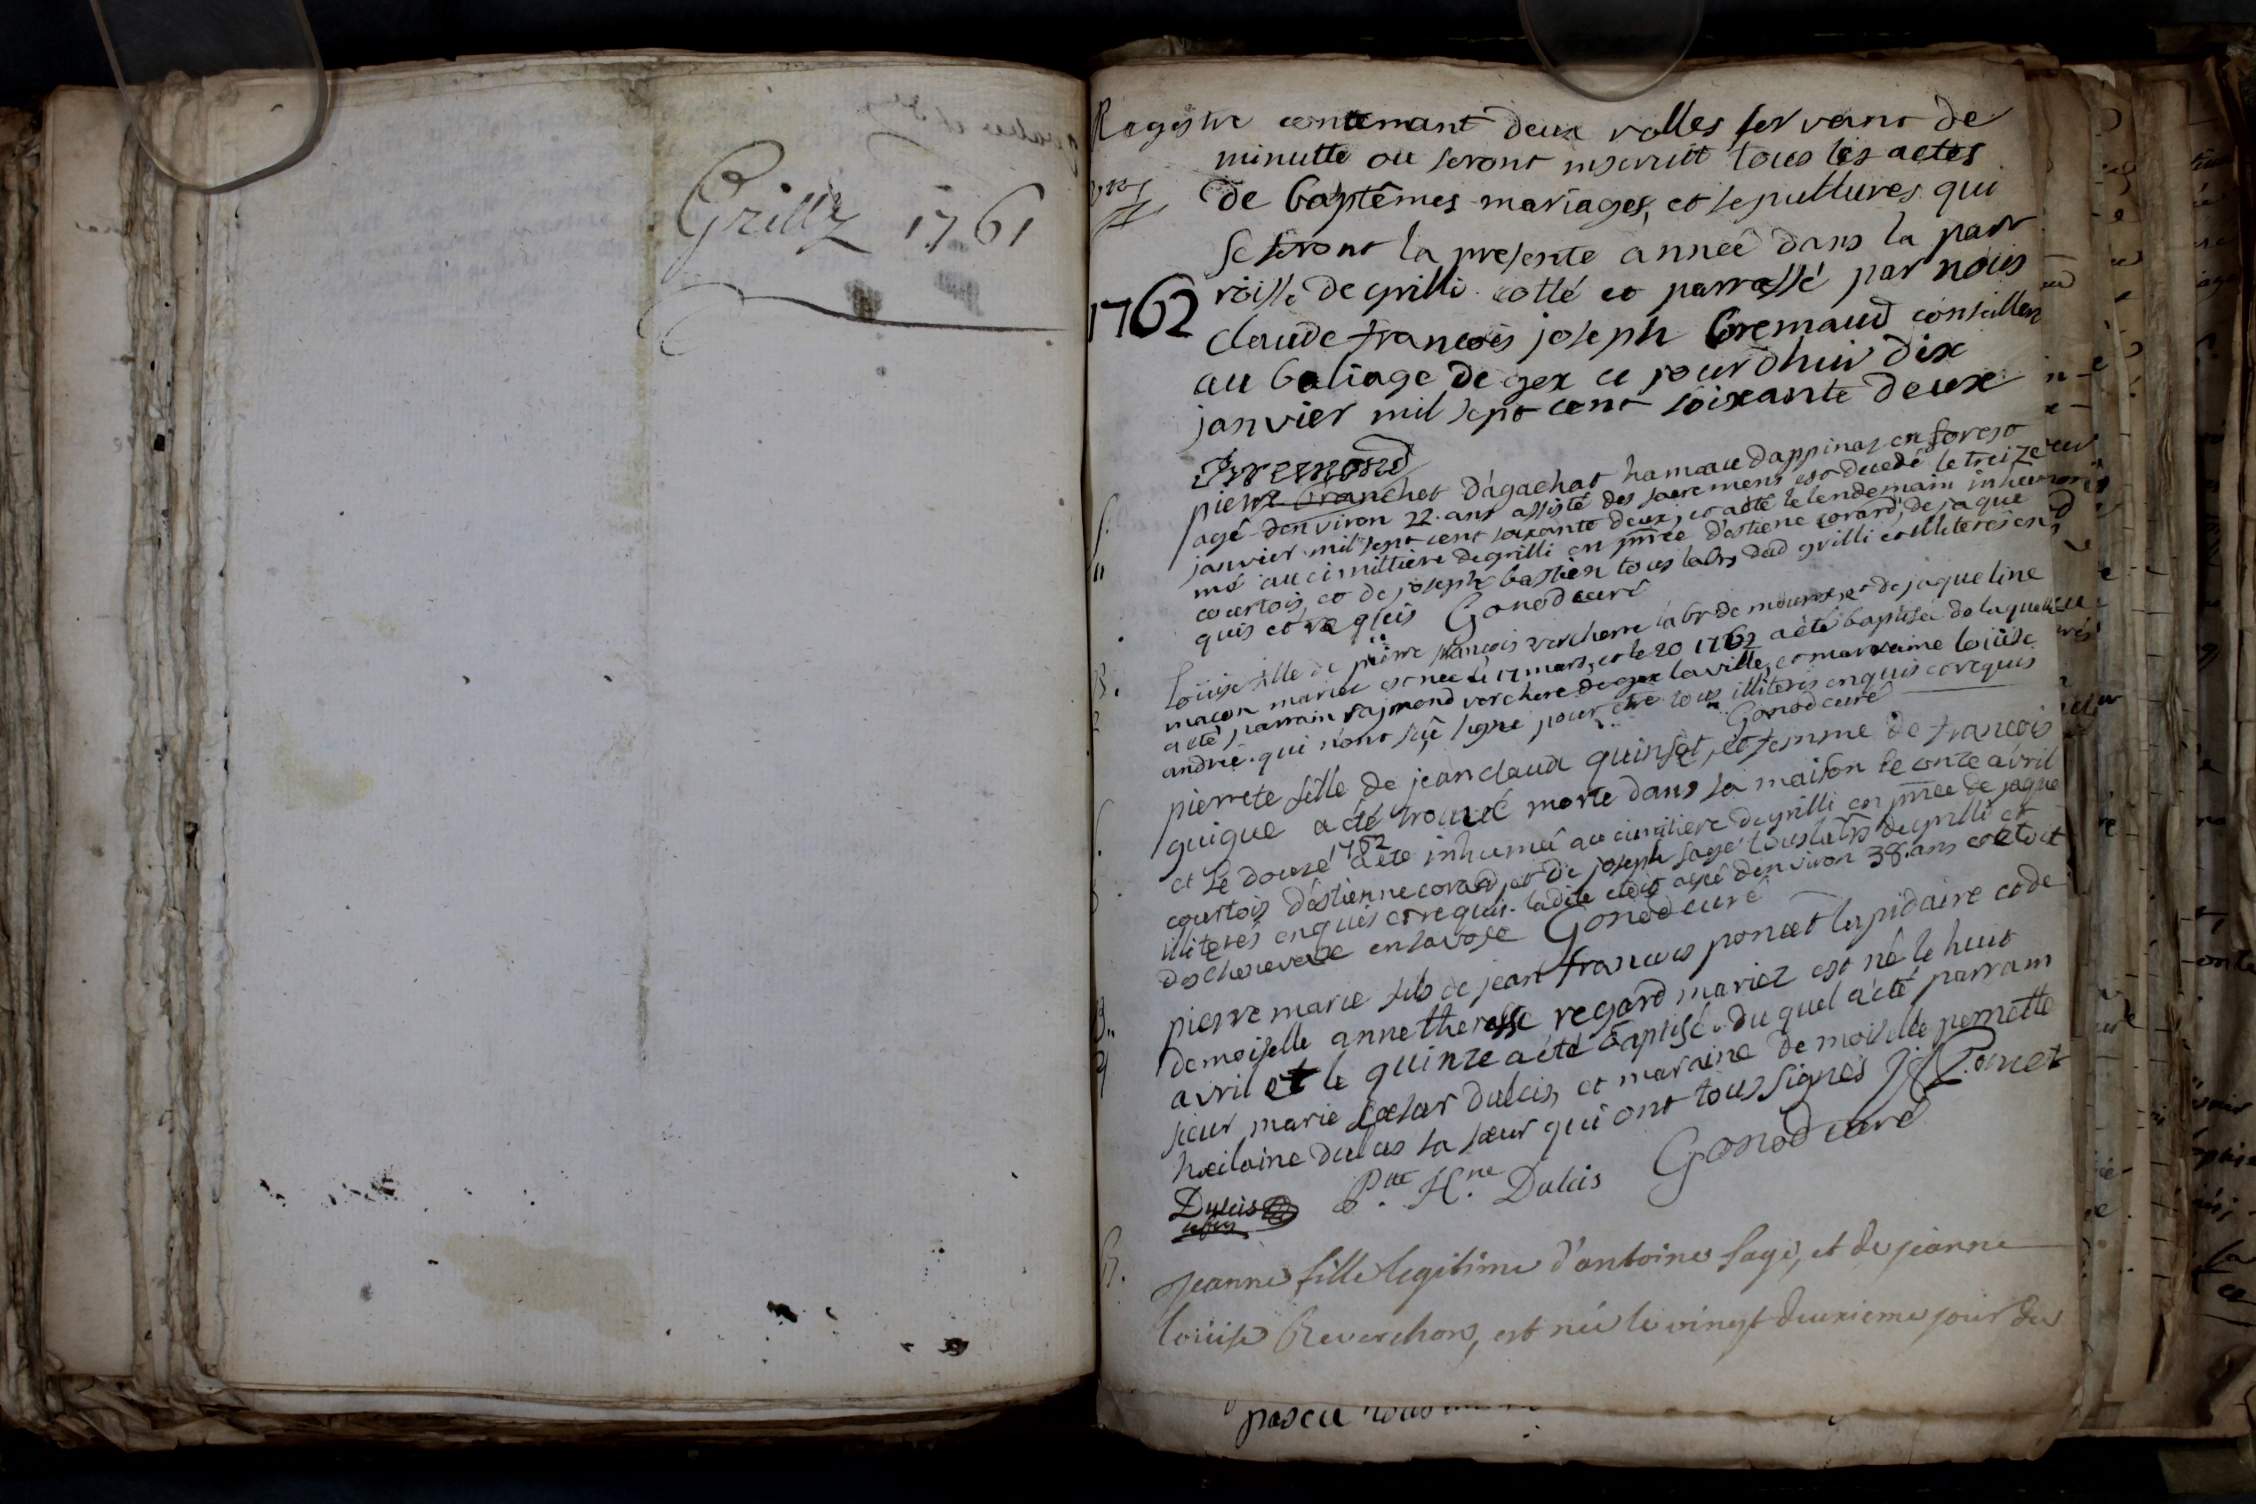 Grilly 1761
Registre contenant deux rolles servant de
minutte ou seront inscritt tous les actes
de baptêmes mariages, et sepultures qui
se feront la presente année dans la parr
roisse de grilli cotté et parraffé par nous
1762
claude françois joseph bremaud conseiller
au baliage de gex ce jourdhui dix
janvier mil sept cent soixante deux
pierre branchet d'agachat hameau dappinaz en forest
agé denviron 22 ans assisté des sacremens est decedé le treize
janvier mil sept cent soixante deux, et a été le lendemain inhu
mé au cimittiere de grilli en pnce d'estiene corard, de jaque
courtois, et de joseph bastien tous labrs dud grilli et illiteres en
quis et requis Gonod curé
B.
loüise fille de pierre françois verchere labr de mourex, et de jaqueline
maçon mariez est née le 17 mars, et le 20 1762 a été baptisée de laquelle
a été parrain raymond verchere de gex la ville, et marraine loüise
andrié qui n'ont sçû signé pour etre tous illiteres enquis et requis
Gonod curé
pierrete fille de jean claude quinset, et femme de françois
guigue a été trouvé morte dans sa maison le onze avril
1762
et le douze a été inhumé au cimitiere de grilli en pnce de jaque
courtois d'estienne corard, et de joseph sage tous labrs de grilli et
illiterés enquis et requis. ladite etoit agé denviron 38. ans et etoit
de chenevese en savoye Gonod curé
B.
pierre marie fils de jean françois poncet lapidaire et de
demoiselle anne theresse regard mariez est né le huit
avril et le quinze a été baptisé. du quel a été parrain
sieur marie cæsar dulcis, et maraine de moiselle pernette
heilaine dulcis sa sœur qui ont tous signés J f Poncet
Dulcis P.tte H.ne Dulcis Gonod curé
B.
Jeanne fille legitime d'antoine sage, et de jeanne
loüise Reverchon, est née le vingt deuxieme jour du